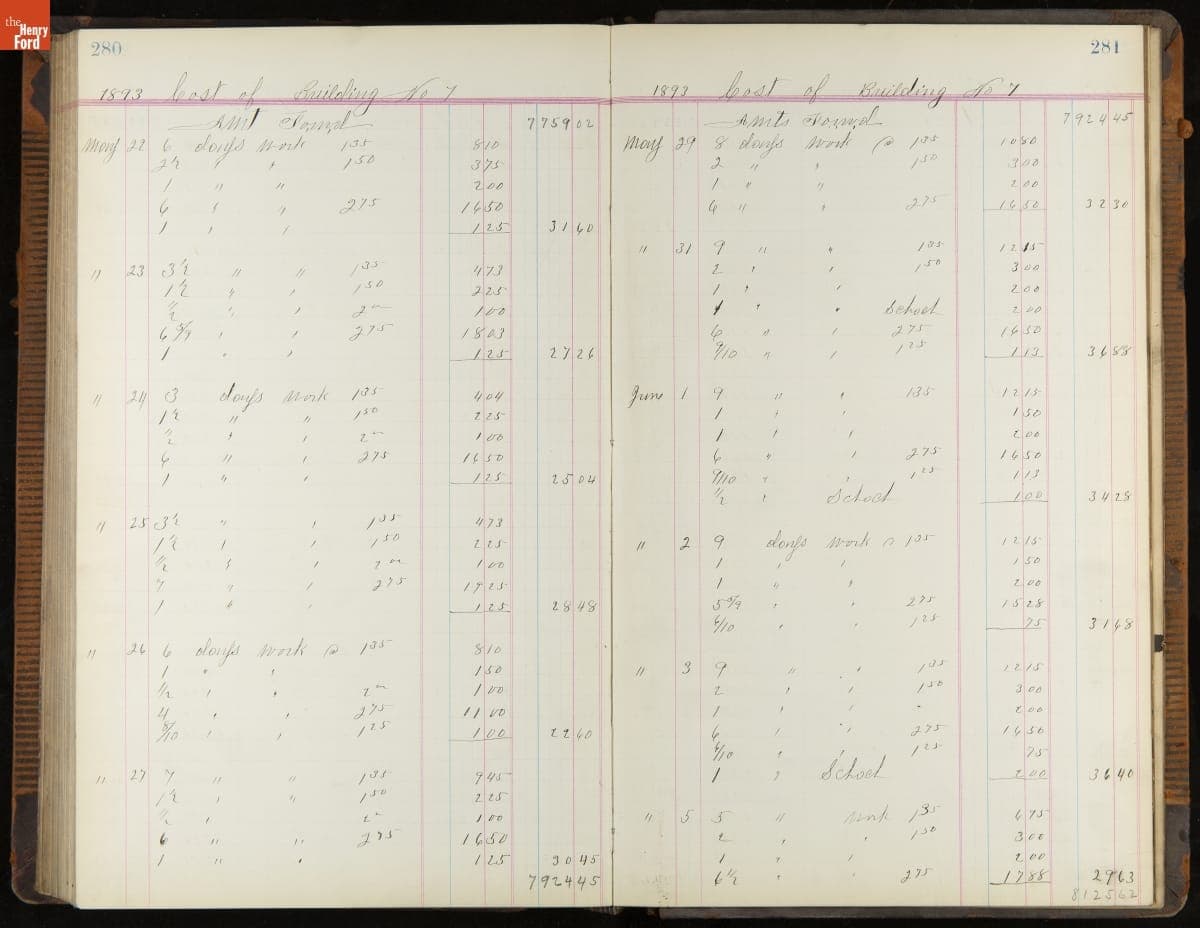 the Henry Ford
280
1893 Cost of Building No 7
Amt Forwd 7759 02
May 22 6 days work 135 8 10
2½ " " 150 3 75
1 " " 2 00
6 " " 275 16 50
1 " " 1 25 31 60
" 23 3½ " " 135 4 73
1½ " " 150 2 25
½ " " 2 00 1 00
6 5/9 " " 275 18 03
1 " " 1 25 27 26
" 24 3 days work 135 4 04
1½ " " 150 2 25
½ " " 2 00 1 00
6 " " 275 16 50
1 " " 1 25 25 04
" 25 3½ " " 135 4 73
1½ " " 150 2 25
½ " " 2 00 1 00
7 " " 275 19 25
1 " " 1 25 28 48
" 26 6 days work @ 135 8 10
1 " " 1 50
½ " " 2 00 1 00
4 " " 275 11 00
8/10 " " 125 1 00 22 60
" 27 7 " " 135 9 45
1½ " " 150 2 25
½ " 2 00 1 00
6 " " 275 16 50
1 " " 1 25 30 45
7924 45
281
1893 Cost of Building No 7
Amts Forwd 7924 45
May 29 8 days work @ 135 10 80
2 " " 150 3 00
1 " " 2 00
6 " " 275 16 50 32 30
" 31 9 " " 135 12 15
2 " " 150 3 00
1 " " 2 00
1 " " School 2 00
6 " " 275 16 50
9/10 " " 125 1 13 36 88
June 1 9 " " 135 12 15
1 " " 1 50
1 " " 2 00
6 " " 275 16 50
9/10 " " 125 1 13
½ " School 1 00 34 28
" 2 9 days work @ 135 12 15
1 " " 1 50
1 " " 2 00
5 5/9 " " 275 15 28
6/10 " " 125 75 31 68
" 3 9 " " 135 12 15
2 " " 150 3 00
1 " " 2 00
6 " " 275 16 50
6/10 " " 125 75
1 " School 2 00 36 40
" 5 5 " work 135 6 75
2 " " 150 3 00
1 " " 2 00
6½ " " 275 17 88 29 63
8125 62